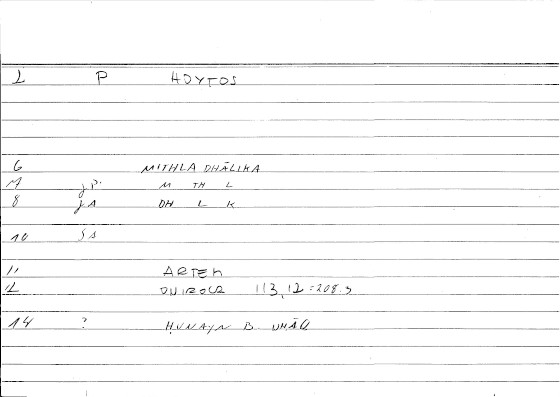 L P HDYTOS
6 MITHLA DHĀLIKA
7 jP. M TH L
8 jA DH L K
10 SA
11 ARTEM
12 ONIROCR 113,12 = 208.3
14 ? HUNAYN B